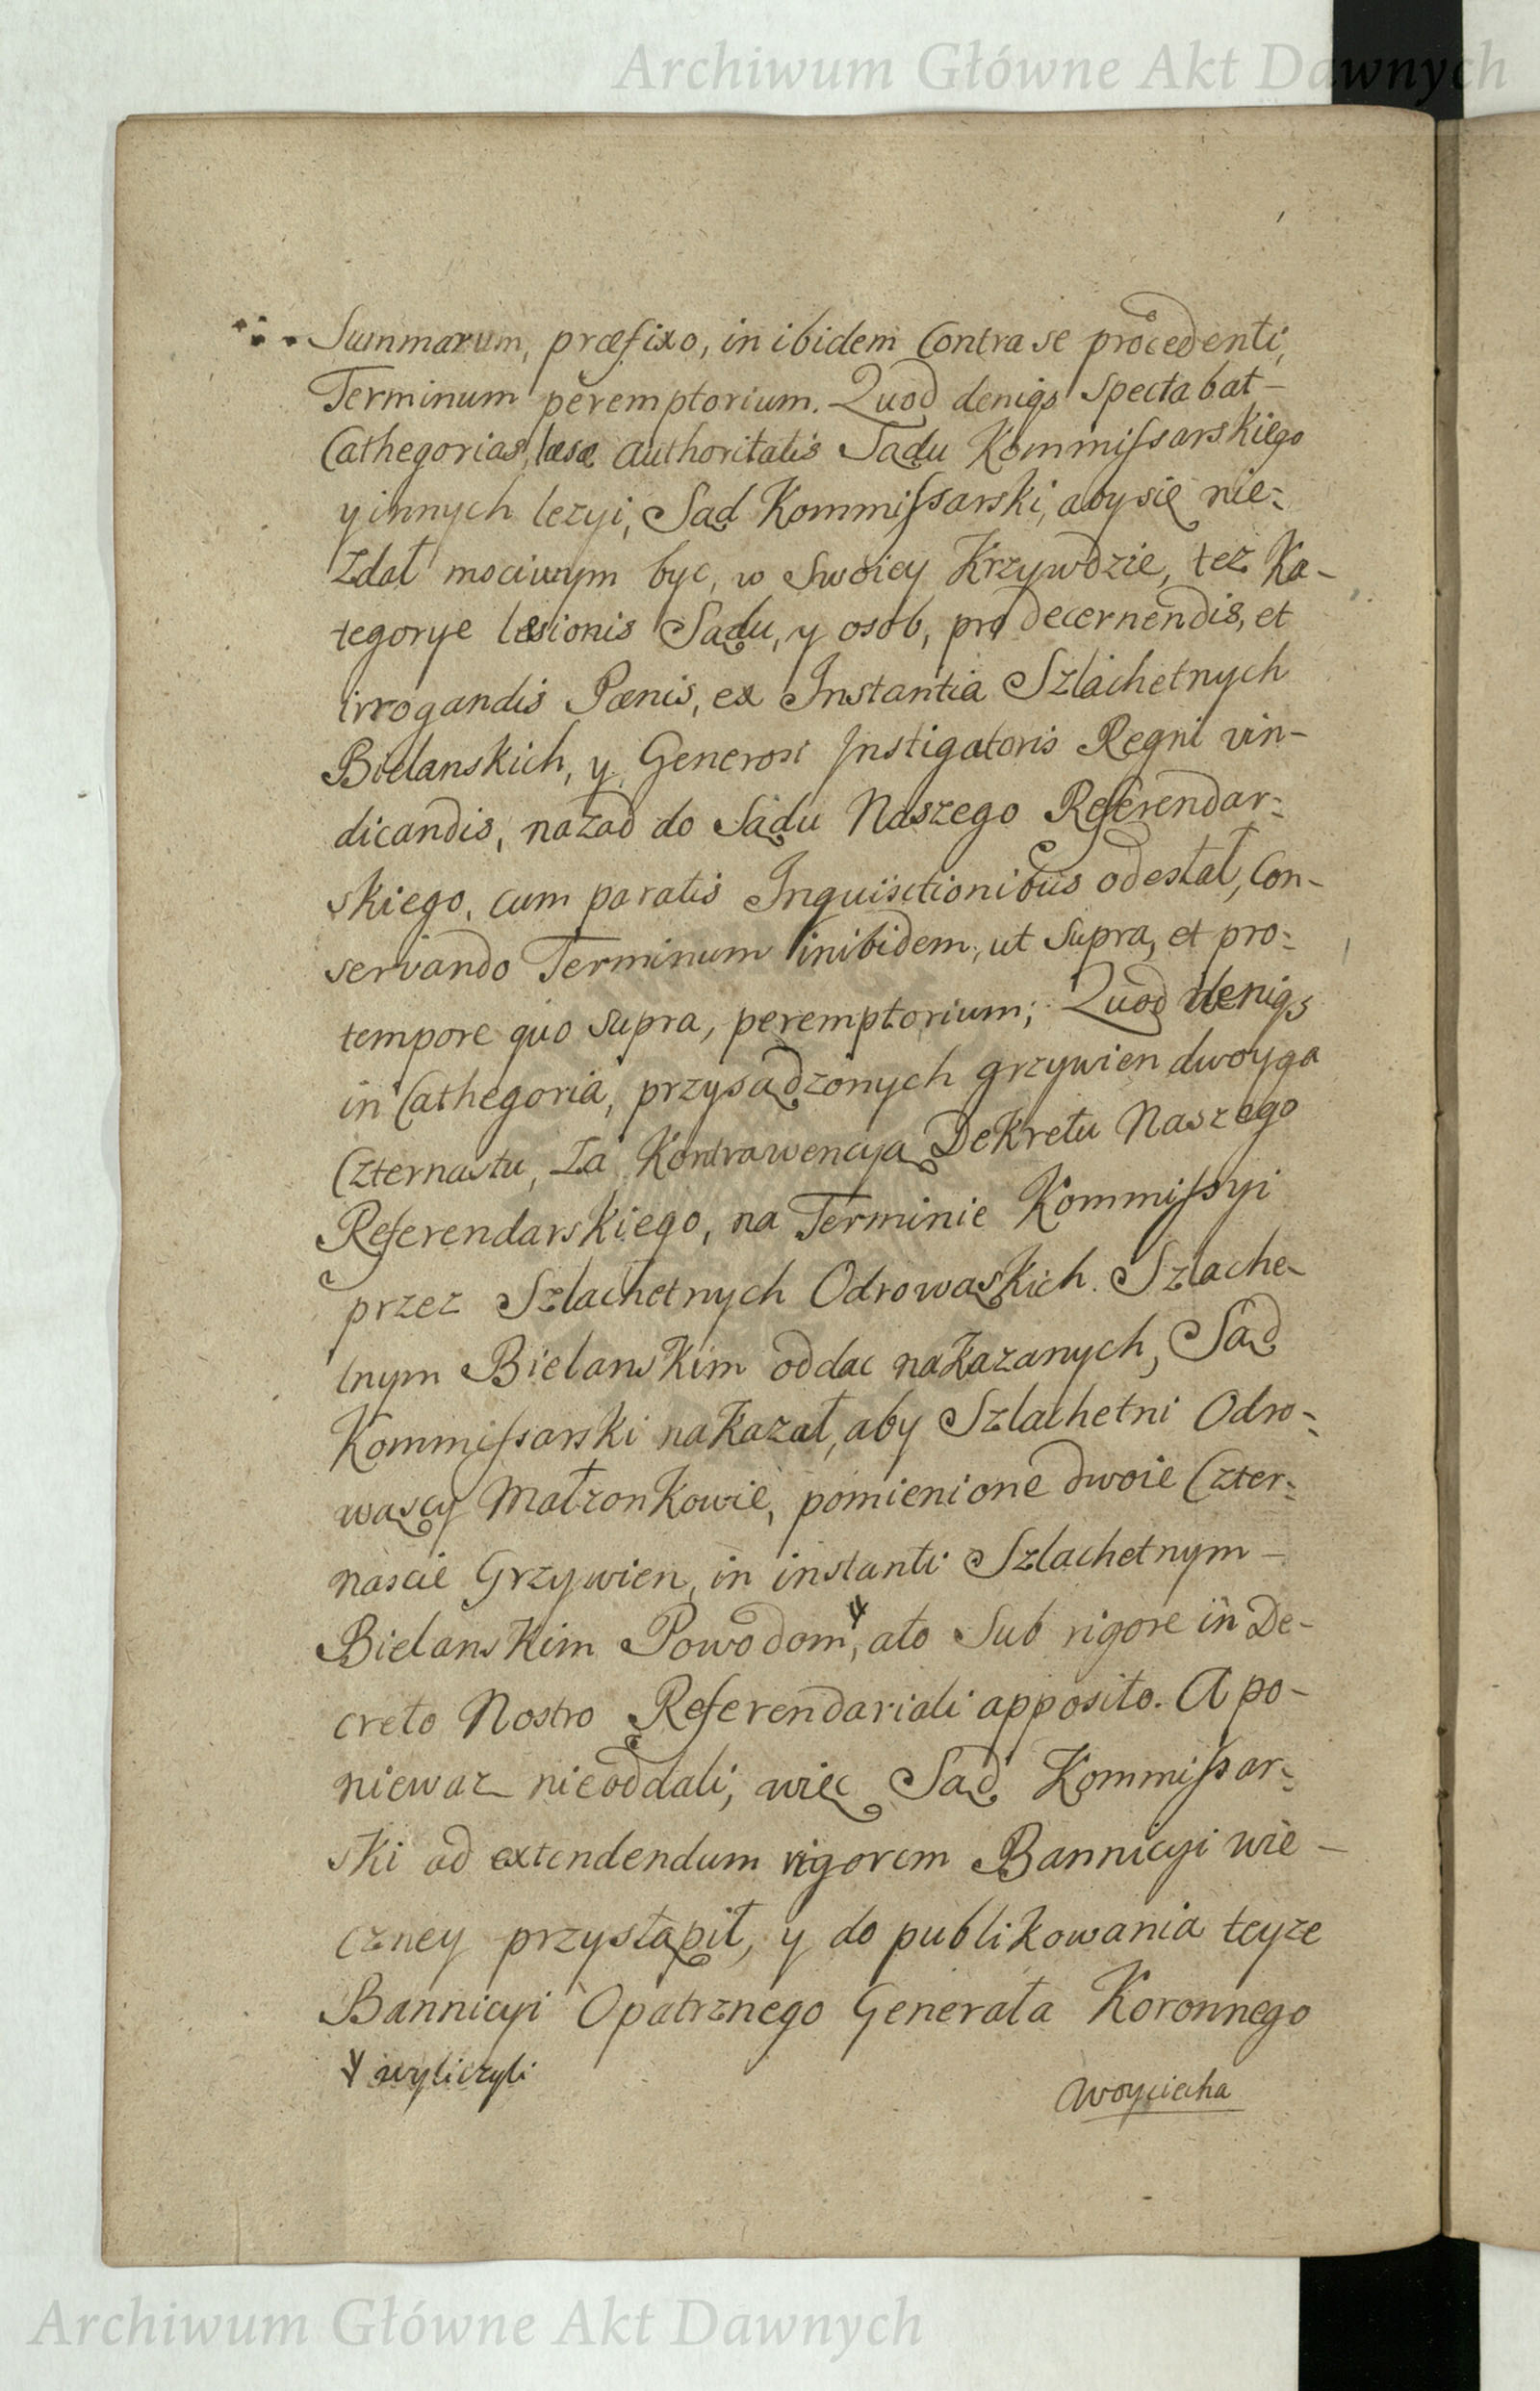 Archiwum Główne Akt Dawnych
Summarum, præfixo, in ibidem Contra se procedenti,
Terminum peremptorium. Quod deniqs Spectabat
Cathegorias læsæ authoritatis Sądu Kommissarskiego
y innych lezyi, Sąd Kommissarski, aby się nie=
Zdał mociwym byc, w Swoiey Krzywdzie, też Ka-
tegorye læsionis Sądu, y osob, pro decernendis, et
irrogandis Pœnis, ex Instantia Szlachetnych
Bielanskich, y Generosi Instigatoris Regni vin-
dicandis, nazad do Sądu Naszego Referendar=
skiego, cum paratis Inquisitionibus odesłał, Con-
servando Terminum inibidem, ut Supra, et pro=
tempore quo supra, peremptorium; Quod deniqs
in Cathegoria, przysądzonych grzywien dwoyga
Czternastu, Za Kontrawencyą Dekretu Naszego
Referendarskiego, na Terminie Kommissyi
przez Szlachetnych Odrowąskich. Szlache-
tnym Bielanskim oddac nakazanych, Sąd
Kommissarski nakazał, aby Szlachetni Odro-
wąscy Małzonkowie, pomienione dwoie Czter=
nascie Grzywien, in instanti Szlachetnym
Bielanskim Powodom, ato Sub rigore in De-
creto Nostro Referendariali apposito. A po-
niewaz nieoddali, więc Sąd Kommissar=
ski ad extendendum rigorem Bannicyi wie-
czney przystąpił, y do publikowania teyze
Bannicyi Opatrznego Generała Koronnego
wyliczyli
Woyciecha
Archiwum Główne Akt Dawnych